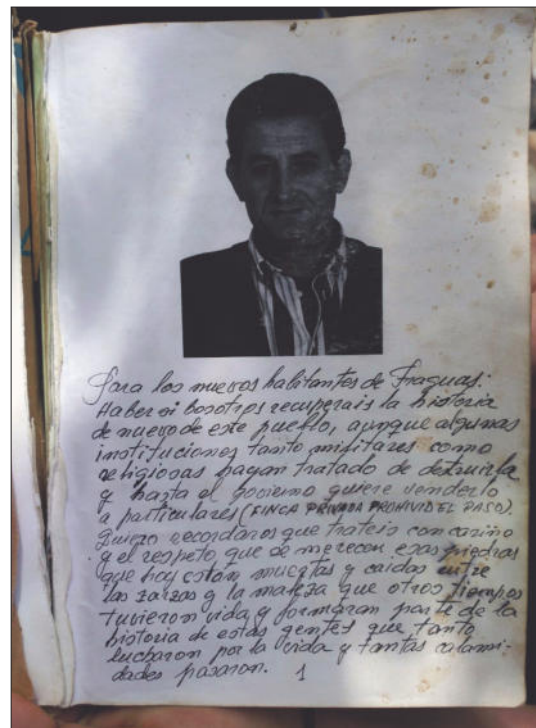 Para los nuevos habitantes de Fraguas:
Haber si bosotros recuperais la historia
de nuevo de este pueblo, aunque algunas
instituciones tanto militares como
religiosas hayan tratado de destruirla
y hasta el govierno quiere venderlo
a particulares (FINCA PRIVADA PROHIVID EL PASO).
Quiero recordaros que trateis con cariño
y el respeto que se merecen esas piedras
que hoy estan muertas y caidas entre
las zarzas y la maleza que otros tiempos
tuvieron vida y formaran parte de la
historia de estas gentes que tanto
lucharon por la vida y tantas calami-
dades pasaron. 1